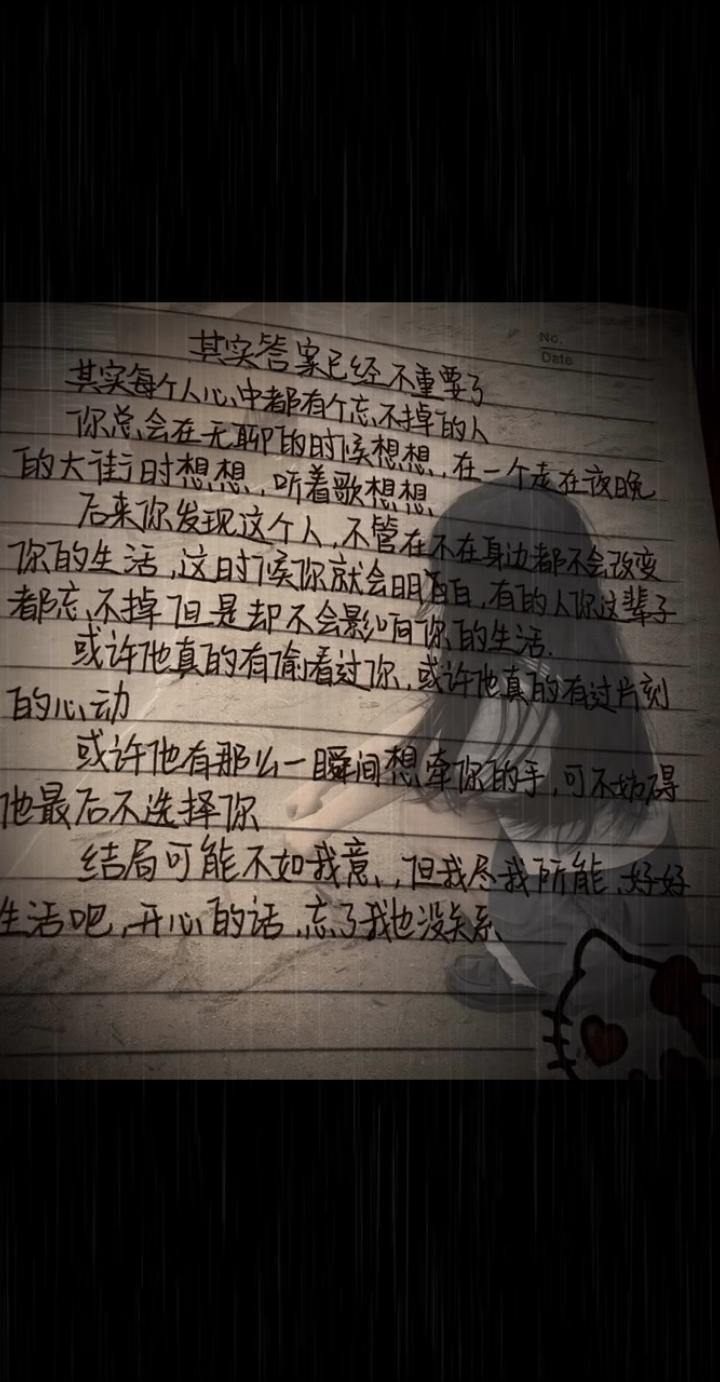 No.
Date
其实答案已经不重要了
其实每个人心中都有个忘不掉的人
你总会在无聊的时候想想，在一个走在夜晚
的大街时想想，听着歌想想、
后来你发现这个人，不管在不在身边都不会改变
你的生活，这时候你就会明白，有的人你这辈子
都忘不掉但是却不会影响你的生活.
或许他真的有偷看过你，或许他真的有过片刻
的心动
或许他有那么一瞬间想牵你的手，可不妨碍
他最后不选择你
结局可能不如我意，但我尽我所能，好好
生活吧，开心的话，忘了我也没关系